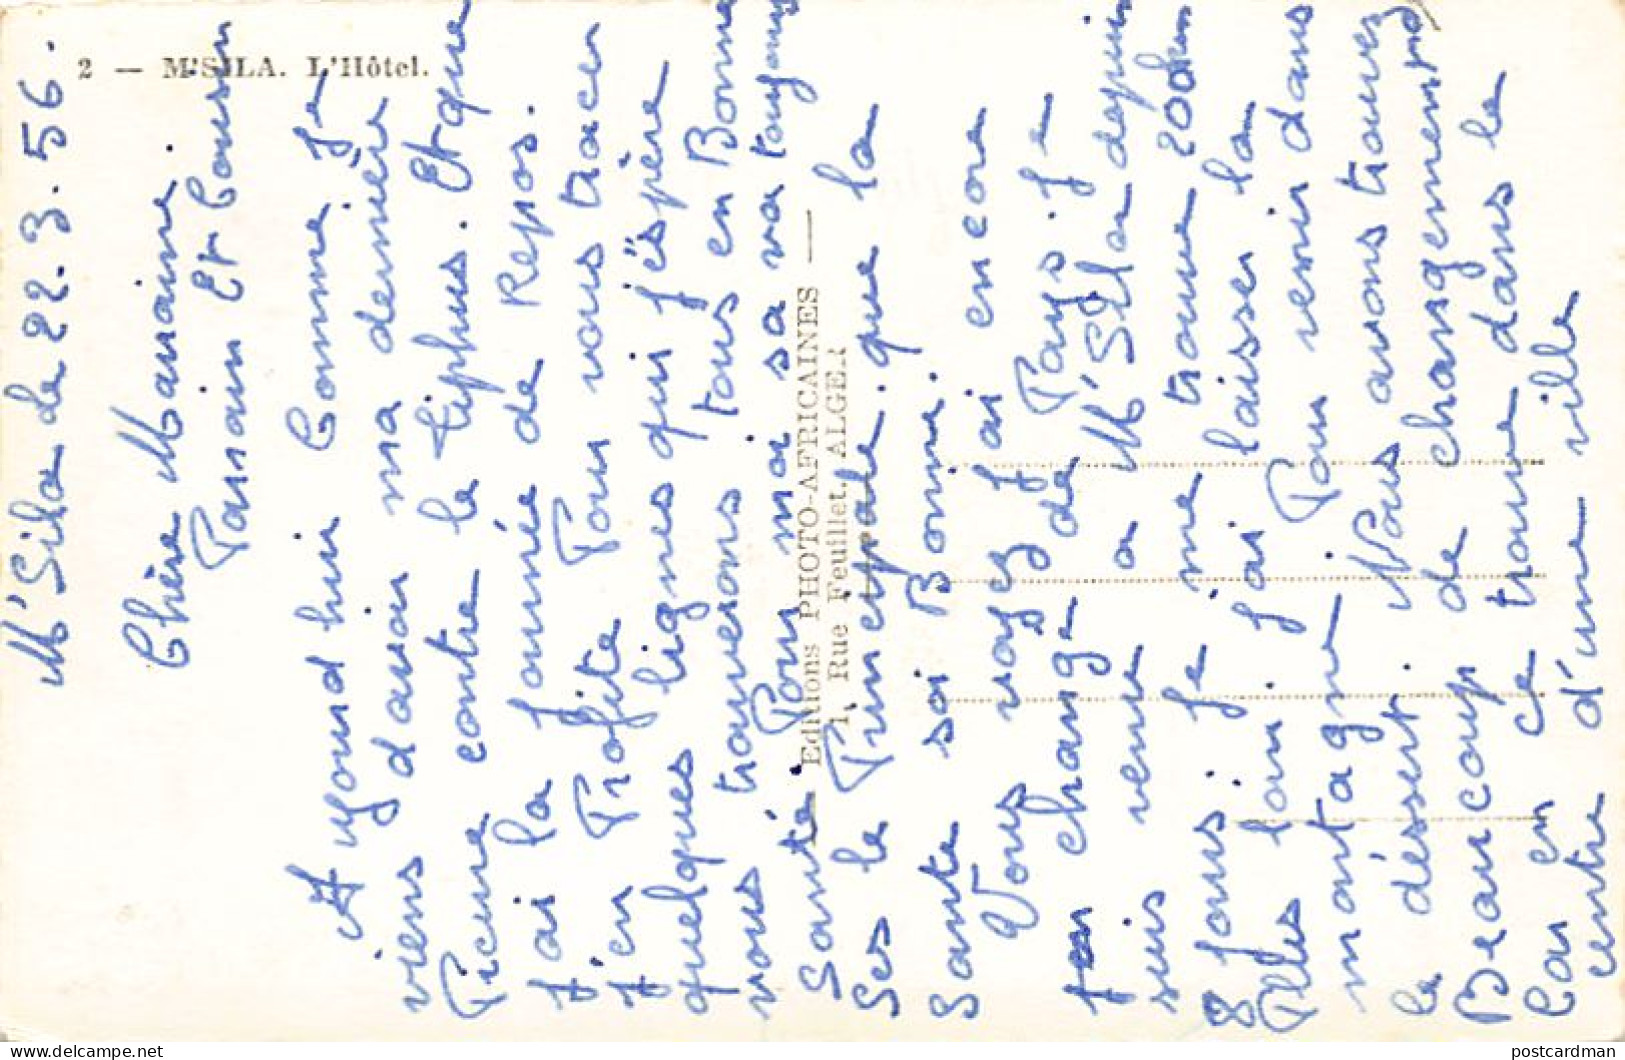 2 — M'SILA. L'Hôtel.
M'Sila Le 22.3.56.
Chère Marraine.
Parain Et Cousin
Aujourd hui Comme Je
viens d'avoir ma dernière
Picure contre le tiphus. Et que
J'ai la Journée de Repos.
J'en Profite Pour vous tracer
quelques lignes qui j'éspère
vous trouverons tous en Bonne
Santé. Pour moi sa va toujours
Ses le Principale. que la
Sante soi Bonne.
Vous voyez J'ai encore
changé de Pays. Je
suis venu a M'Sila depuis
8 jours. Je me trouve 200 km
Plus loin. J'ai laisser la
montagne Pour venir dans
le désert. Nous avons trouvez
Beaucoup de changements
Car en ce trouve dans le
centre d'une ville
Editions PHOTO-AFRICAINES —
1, Rue Feuillet. ALGER
postcardman